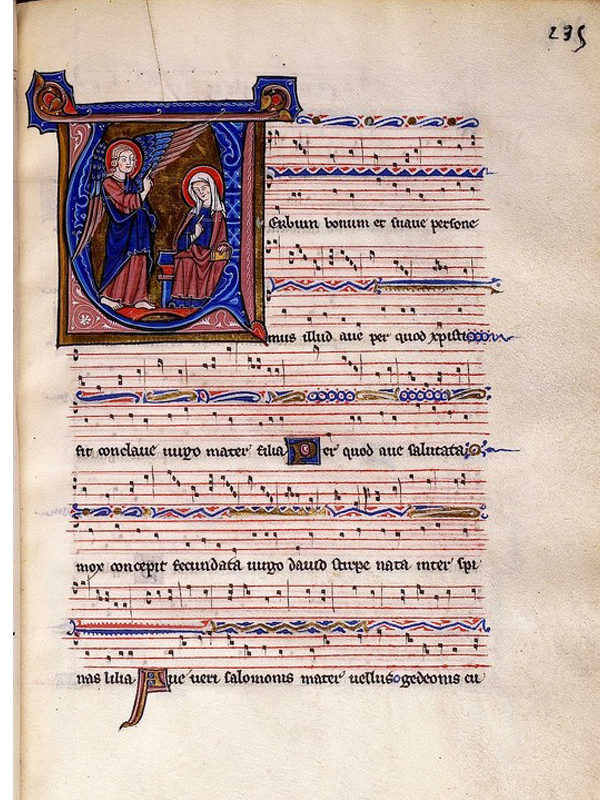 235
VErbum bonum et suaue persone
mus illud aue per quod xpisti
fit conclaue uirgo mater filia Per quod aue salutata
mox concepit fecundata uirgo dauid stirpe nata inter spi
nas lilia Aue ueri salomonis mater uellus gedeonis cu